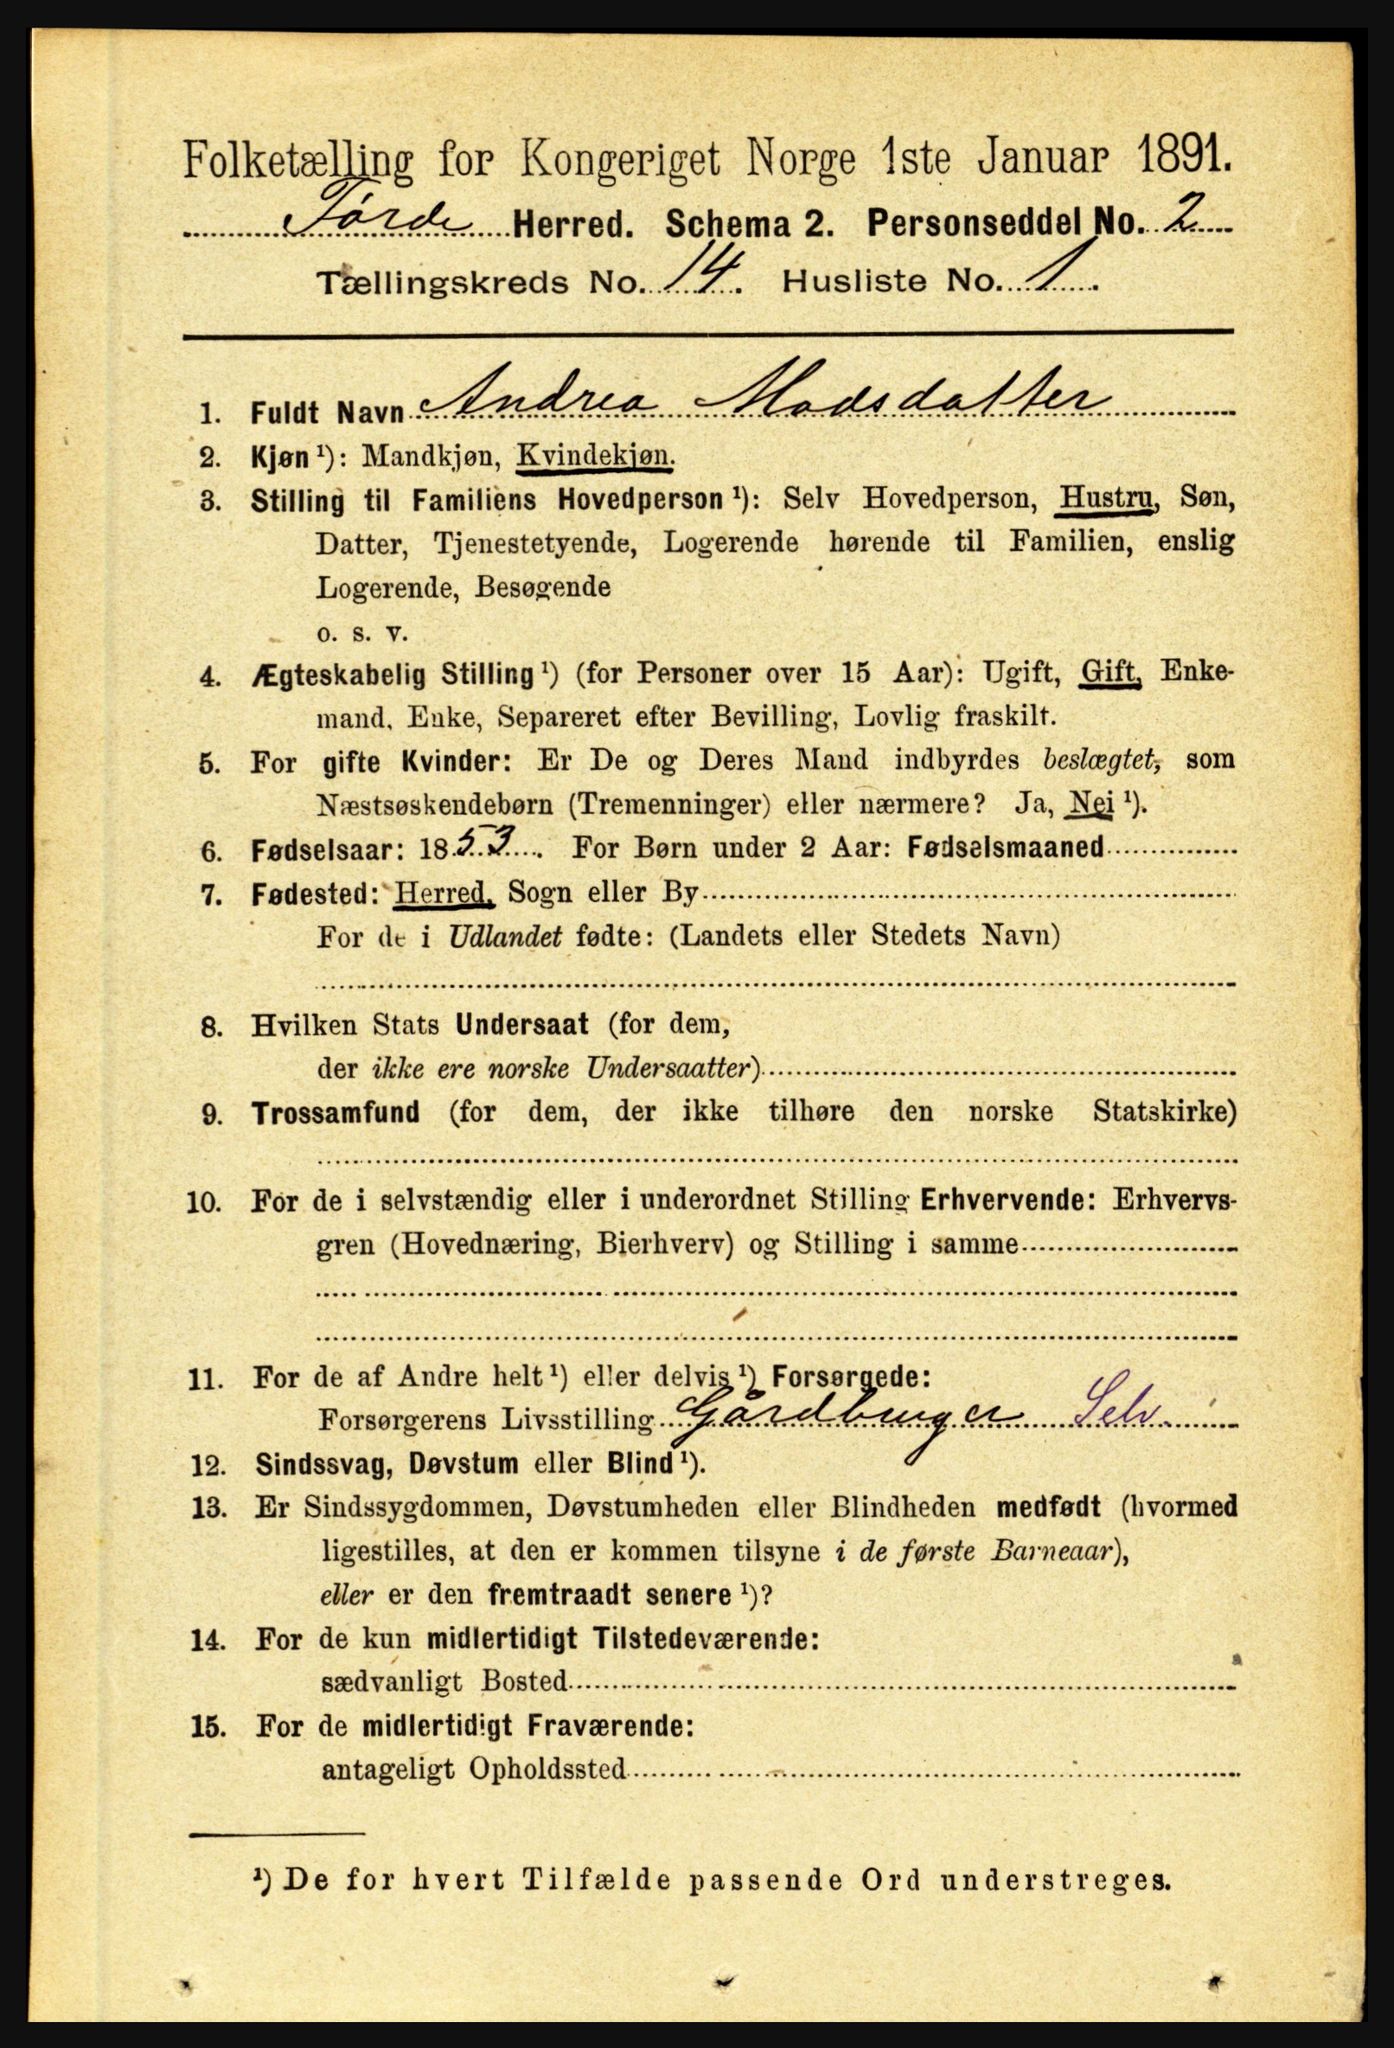 Folketælling for Kongeriget Norge 1ste Januar 1891.
Førde Herred. Schema 2. Personseddel No. 2
Tællingskreds No. 14. Husliste No. 1.
1. Fuldt Navn Andrea Madsdatter
2. Kjøn ¹): Mandkjøn, Kvindekjøn.
3. Stilling til Familiens Hovedperson ¹): Selv Hovedperson, Hustru, Søn,
Datter, Tjenestetyende, Logerende hørende til Familien, enslig
Logerende, Besøgende
o. s. v.
4. Ægteskabelig Stilling ¹) (for Personer over 15 Aar): Ugift, Gift, Enke-
mand, Enke, Separeret efter Bevilling, Lovlig fraskilt.
5. For gifte Kvinder: Er De og Deres Mand indbyrdes beslægtet, som
Næstsøskendebørn (Tremenninger) eller nærmere? Ja, Nei ¹).
6. Fødselsaar: 1853. For Børn under 2 Aar: Fødselsmaaned
7. Fødested: Herred, Sogn eller By
For de i Udlandet fødte: (Landets eller Stedets Navn)
8. Hvilken Stats Undersaat (for dem,
der ikke ere norske Undersaatter)
9. Trossamfund (for dem, der ikke tilhøre den norske Statskirke)
10. For de i selvstændig eller i underordnet Stilling Erhvervende: Erhvervs-
gren (Hovednæring, Bierhverv) og Stilling i samme
11. For de af Andre helt ¹) eller delvis ¹) Forsørgede:
Forsørgerens Livsstilling Gårdbruger Selv
12. Sindssvag, Døvstum eller Blind ¹).
13. Er Sindssygdommen, Døvstumheden eller Blindheden medfødt (hvormed
ligestilles, at den er kommen tilsyne i de første Barneaar),
eller er den fremtraadt senere ¹)?
14. For de kun midlertidigt Tilstedeværende:
sædvanligt Bosted
15. For de midlertidigt Fraværende:
antageligt Opholdssted
¹) De for hvert Tilfælde passende Ord understreges.